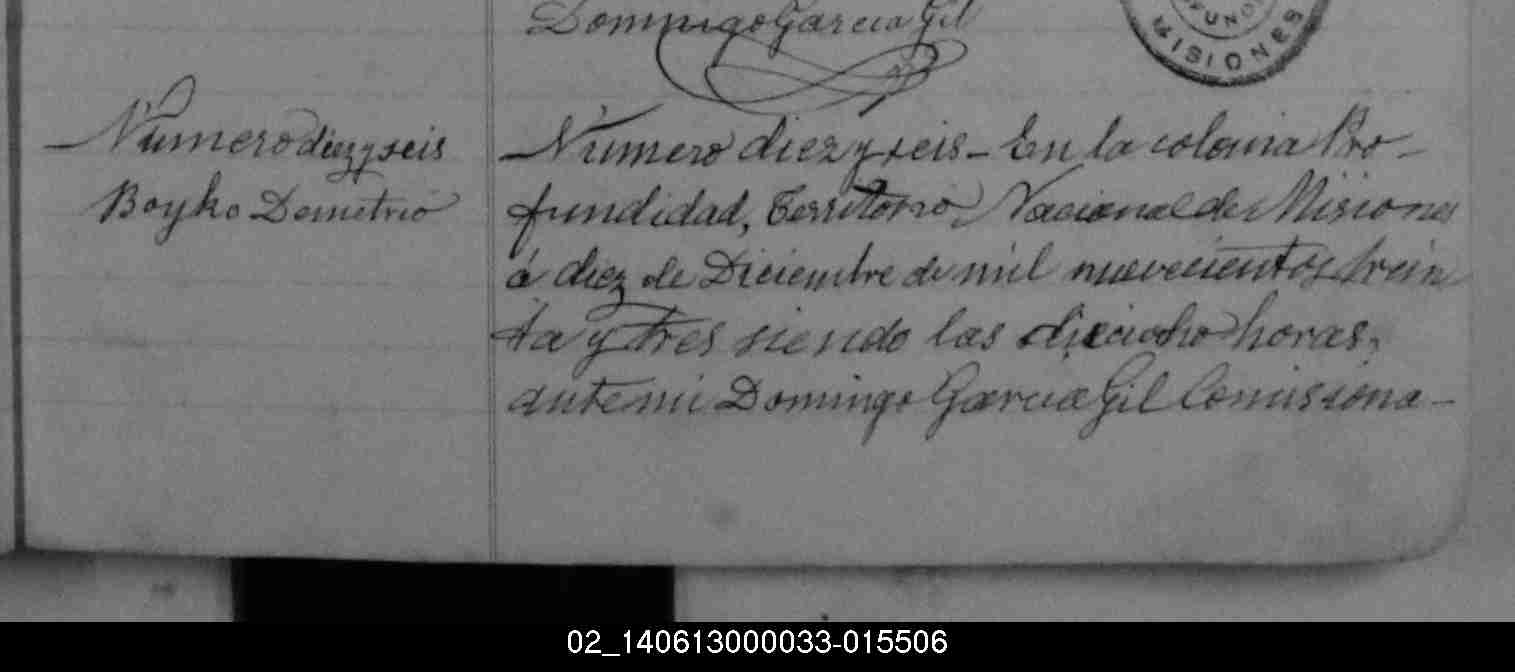 Domingo Garcia Gil
FUNDI
MISIONES
Número diez y seis
Boyko Demetrio
Número diez y seis - En la colonia Pro-
fundidad, Territorio Nacional de Misiones
á diez de Diciembre de mil novecientos trein
ta y tres siendo las dieciocho horas,
ante mi Domingo Garcia Gil Comisiona-
02_140613000033-015506